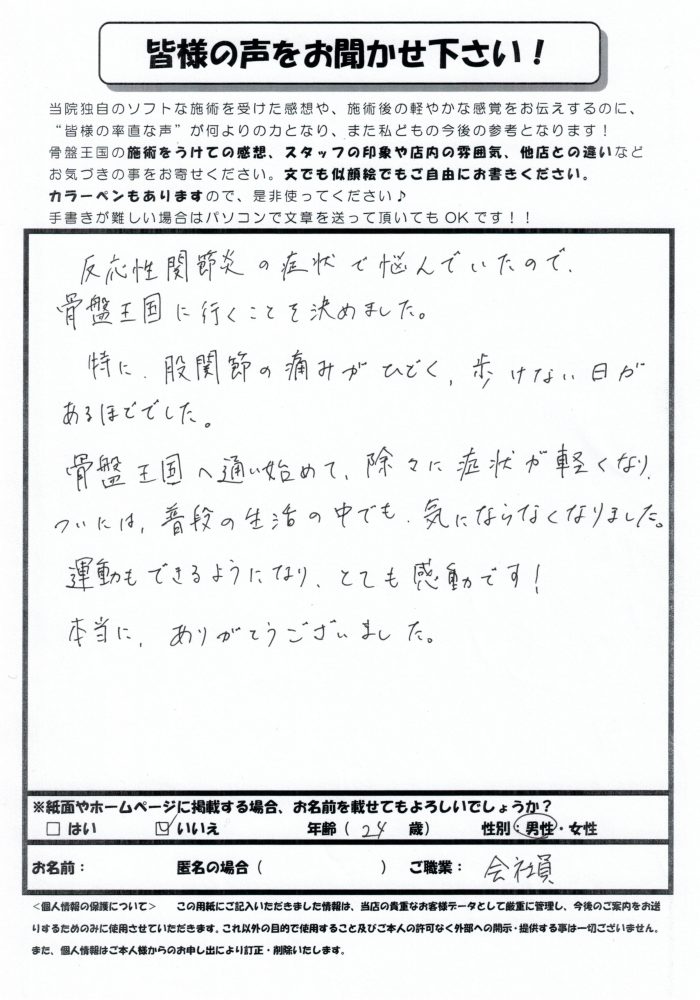 皆様の声をお聞かせ下さい！
当院独自のソフトな施術を受けた感想や、施術後の軽やかな感覚をお伝えするのに、
“皆様の率直な声”が何よりの力となり、また私どもの今後の参考となります！
骨盤王国の施術をうけての感想、スタッフの印象や店内の雰囲気、他店との違いなど
お気づきの事をお寄せください。文でも似顔絵でもご自由にお書きください。
カラーペンもありますので、是非使ってください♪
手書きが難しい場合はパソコンで文章を送って頂いてもOKです！！
反応性関節炎の症状で悩んでいたので、
骨盤王国に行くことを決めました。
特に、股関節の痛みがひどく、歩けない日が
あるほどでした。
骨盤王国へ通い始めて、除々に症状が軽くなり、
ついには、普段の生活の中でも、気にならなくなりました。
運動もできるようになり、とても感動です！
本当に、ありがとうございました。
※紙面やホームページに掲載する場合、お名前を載せてもよろしいでしょうか？
□ はい ☑ いいえ 年齢（ 24 歳） 性別：男性・女性
お名前： 匿名の場合（ ） ご職業： 会社員
＜個人情報の保護について＞ この用紙にご記入いただきました情報は、当店の貴重なお客様データとして厳重に管理し、今後のご案内をお送
りするためのみに使用させていただきます。これ以外の目的で使用すること及びご本人の許可なく外部への開示・提供する事は一切ございません。
また、個人情報はご本人様からのお申し出により訂正・削除いたします。